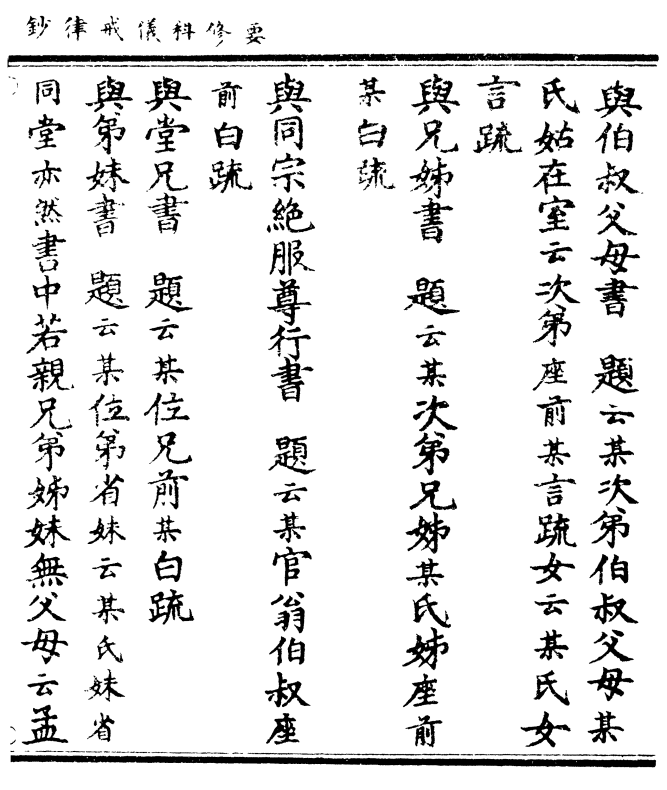 要修科儀戒律鈔
與伯叔父母書 題云某次第伯叔父母某
氏姑在室云次第座前某言疏女云某氏女
言疏
與兄姊書 題云某次第兄姊某氏姊座前
某白疏
與同宗絶服尊行書 題云某官翁伯叔座
前白疏
與堂兄書 題云某位兄前某白疏
與弟妹書 題云某位第省妹云某氏妹省
同堂亦然書中若親兄弟姊妹無父母云孟